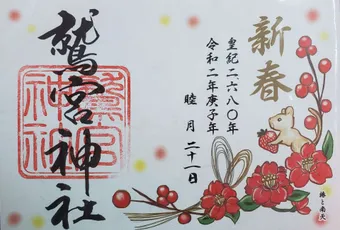 新春
皇紀二、六八〇年
令和二年庚子年
睦月 二十一日
鷲宮神社
鷲宮
神社
椿と南天